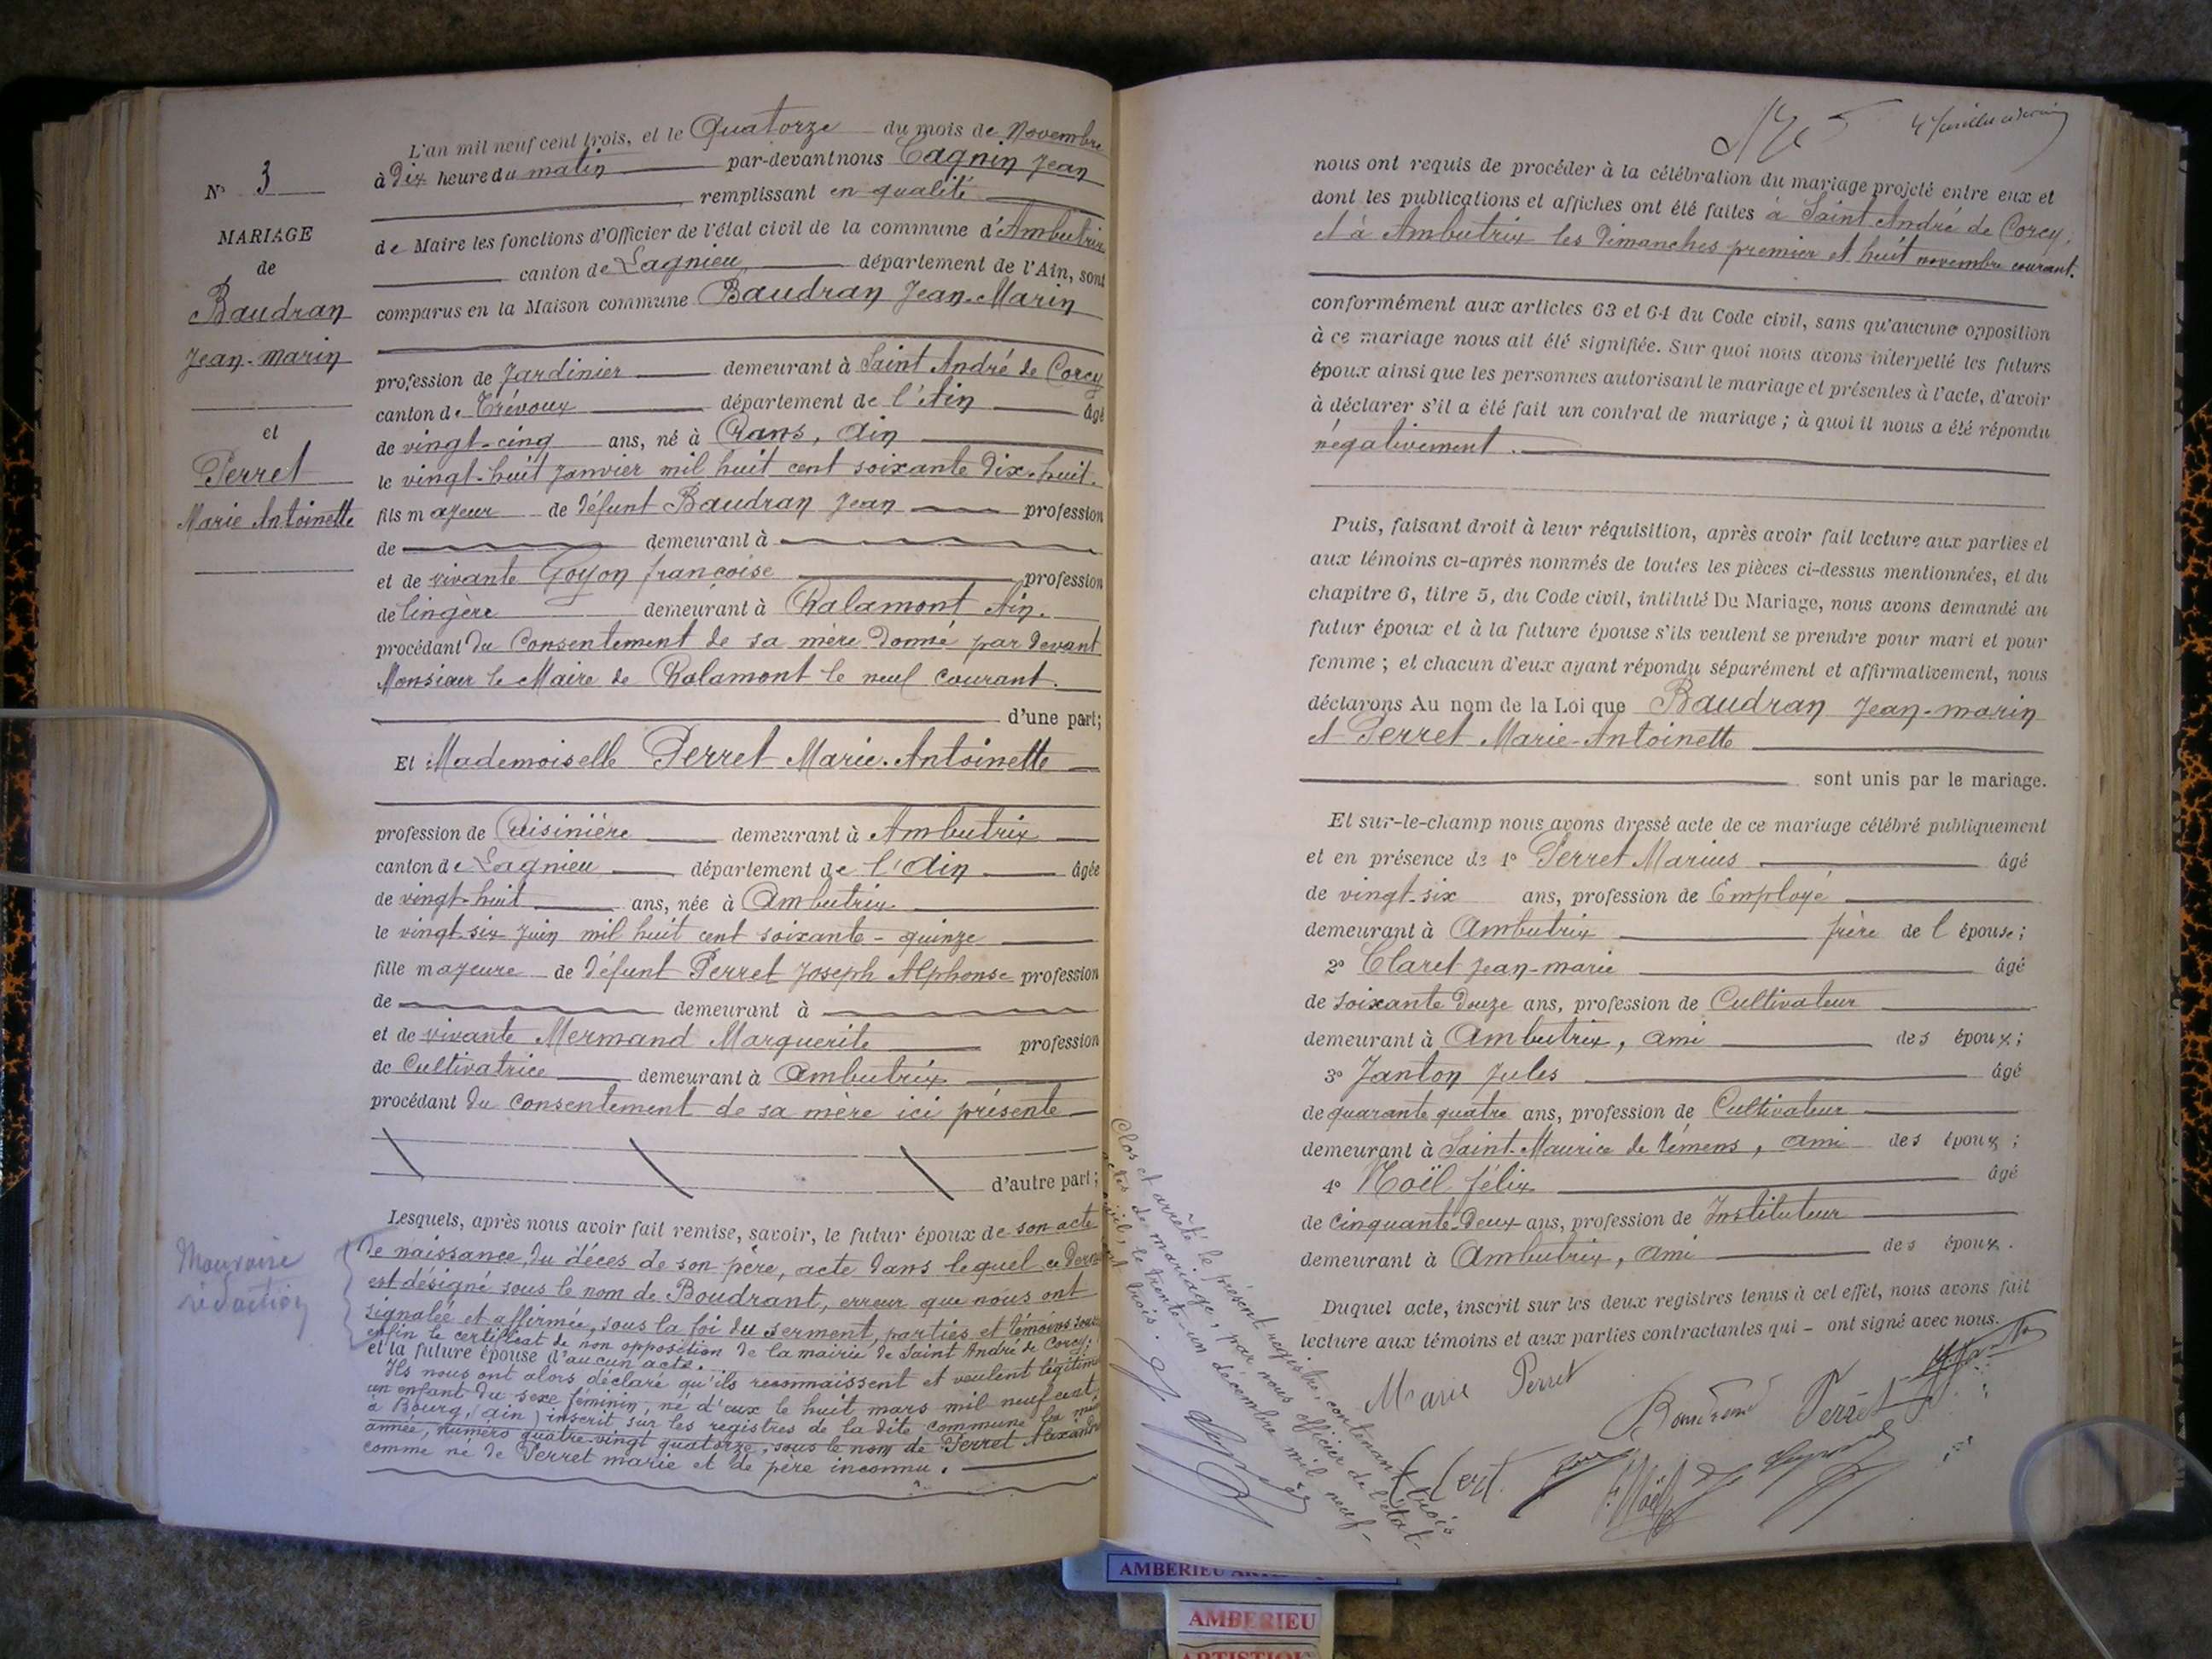 N° 3
MARIAGE
de
Baudran
Jean-Marin
et
Perret
Marie Antoinette
L'an mil neuf cent trois, et le Quatorze du mois de Novembre
à Dix heure du matin par-devant nous Cagnin Jean
remplissant en qualité
de Maire les fonctions d'Officier de l'état civil de la commune d'Ambutrix
canton de Lagnieu département de l'Ain, sont
comparus en la Maison commune Baudran Jean-Marin
profession de Jardinier demeurant à Saint André de Corcy
canton de Trévoux département de l'Ain âgé
de vingt-cinq ans, né à Crans, Ain
le vingt-huit Janvier mil huit cent soixante dix-huit.
fils majeur de défunt Baudran Jean profession
de demeurant à
et de vivante Goyon françoise profession
de lingère demeurant à Chalamont Ain.
procédant du Consentement de sa mère donné par devant
Monsieur le Maire de Chalamont le neuf courant.
d'une part;
Et Mademoiselle Perret Marie-Antoinette
profession de Cuisinière demeurant à Ambutrix
canton de Lagnieu département de l'Ain âgée
de vingt-huit ans, née à Ambutrix
le vingt-six Juin mil huit cent soixante-quinze
fille majeure de défunt Perret Joseph Alphonse profession
de demeurant à
et de vivante Mermand Marguerite profession
de Cultivatrice demeurant à Ambutrix
procédant du Consentement de sa mère ici présente
d'autre part;
Lesquels, après nous avoir fait remise, savoir, le futur époux de son acte
de naissance, du décès de son père, acte dans lequel ce dernier
est désigné sous le nom de Boudrant, erreur que nous ont
signalée et affirmée, sous la foi du serment, parties et témoins
enfin le certificat de non opposition de la mairie de Saint André de Corcy;
et la future épouse d'aucun acte.
Ils nous ont alors déclaré qu'ils reconnaissent et veulent légitimer
un enfant du sexe féminin, né d'eux le huit mars mil neuf cent
à Bourg, (Ain) inscrit sur les registres de la dite commune la
année, numéro quatre-vingt quatorze, sous le nom de Perret
comme né de Perret marie et de père inconnu.
Mauvaise
rédaction
nous ont requis de procéder à la célébration du mariage projeté entre eux et
dont les publications et affiches ont été faites à Saint André de Corcy
et à Ambutrix les Dimanches premier et huit novembre courant.
conformément aux articles 63 et 64 du Code civil, sans qu'aucune opposition
à ce mariage nous ait été signifiée. Sur quoi nous avons interpellé les futurs
époux ainsi que les personnes autorisant le mariage et présentes à l'acte, d'avoir
à déclarer s'il a été fait un contrat de mariage; à quoi il nous a été répondu
négativement.
Puis, faisant droit à leur réquisition, après avoir fait lecture aux parties et
aux témoins ci-après nommés de toutes les pièces ci-dessus mentionnées, et du
chapitre 6, titre 5, du Code civil, intitulé Du Mariage, nous avons demandé au
futur époux et à la future épouse s'ils veulent se prendre pour mari et pour
femme; et chacun d'eux ayant répondu séparément et affirmativement, nous
déclarons Au nom de la Loi que Baudran Jean-marin
et Perret Marie-Antoinette
sont unis par le mariage.
Et sur-le-champ nous avons dressé acte de ce mariage célébré publiquement
et en présence de 1° Perret Marius âgé
de vingt-six ans, profession de Employé
demeurant à Ambutrix frère de l épouse;
2° Claret Jean-marie âgé
de soixante douze ans, profession de Cultivateur
demeurant à Ambutrix, ami des époux;
3° Janton Jules âgé
de quarante quatre ans, profession de Cultivateur
demeurant à Saint-Maurice de Rémens, ami des époux;
4° Noël félix âgé
de Cinquante-Deux ans, profession de Instituteur
demeurant à Ambutrix, ami des époux.
Duquel acte, inscrit sur les deux registres tenus à cet effet, nous avons fait
lecture aux témoins et aux parties contractantes qui - ont signé avec nous.
Marie Perret
Perret
F. Noël
Clos et arrêté le présent registre, contenant trois
actes de mariage, par nous officier de l'état-
civil, le trente-un décembre mil neuf-
cent trois.
AMBERIEU
AMBERIEU